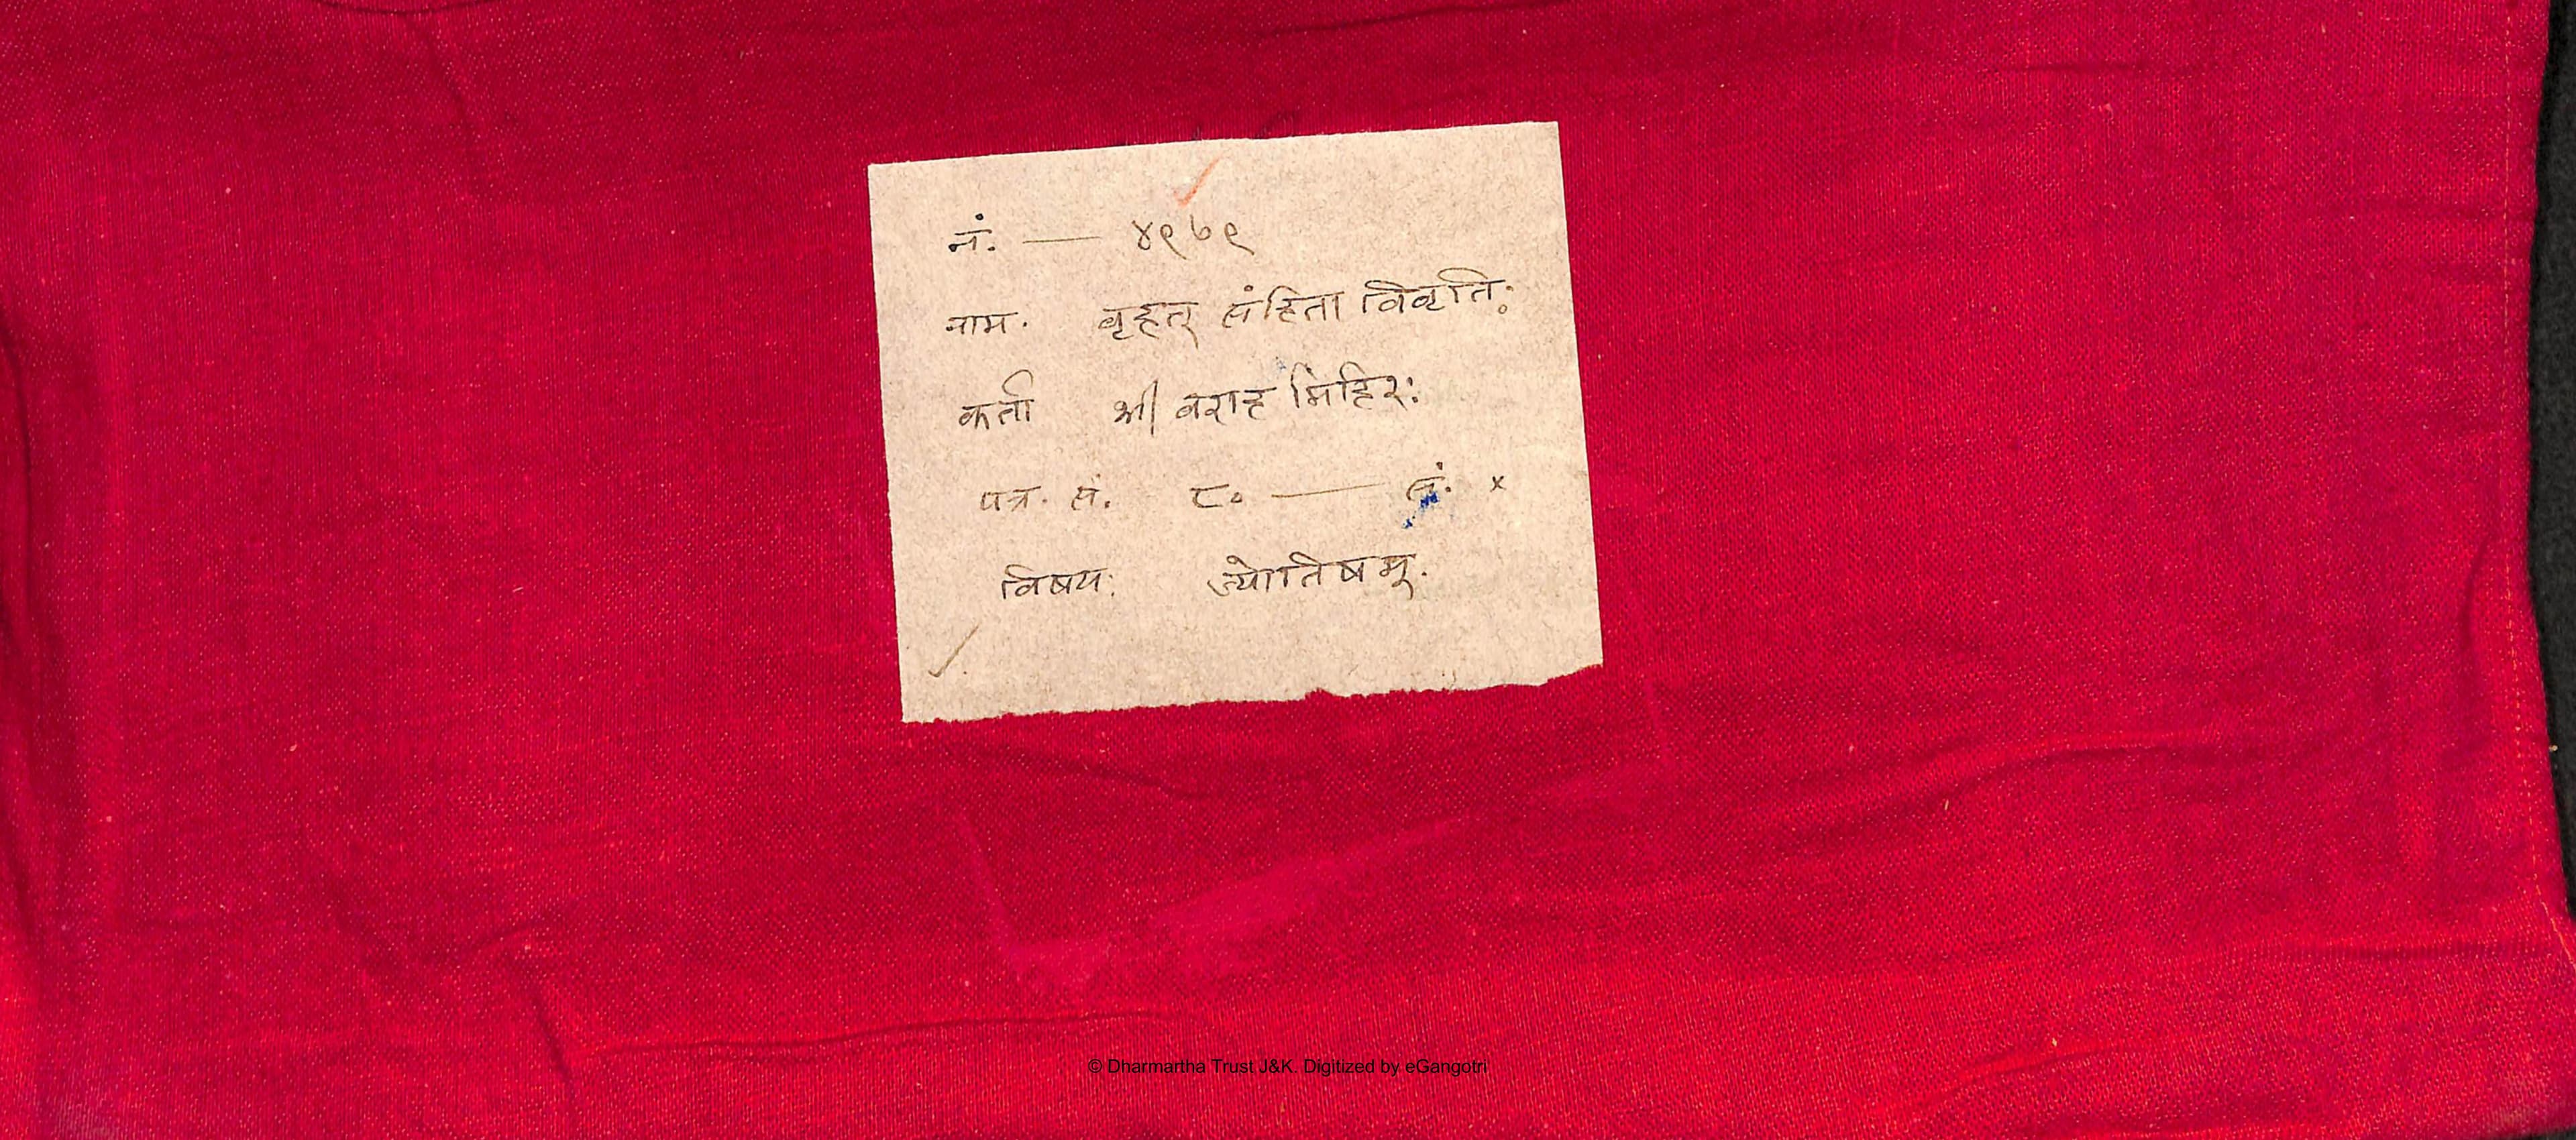 नं. — ४९७९
नाम. वृहत् संहिता विवृतिः
कर्ता श्री वराह मिहिरः
पत्र. सं. ८० — सं. x
विषयः ज्योतिषम्.
© Dharmartha Trust J&K. Digitized by eGangotri